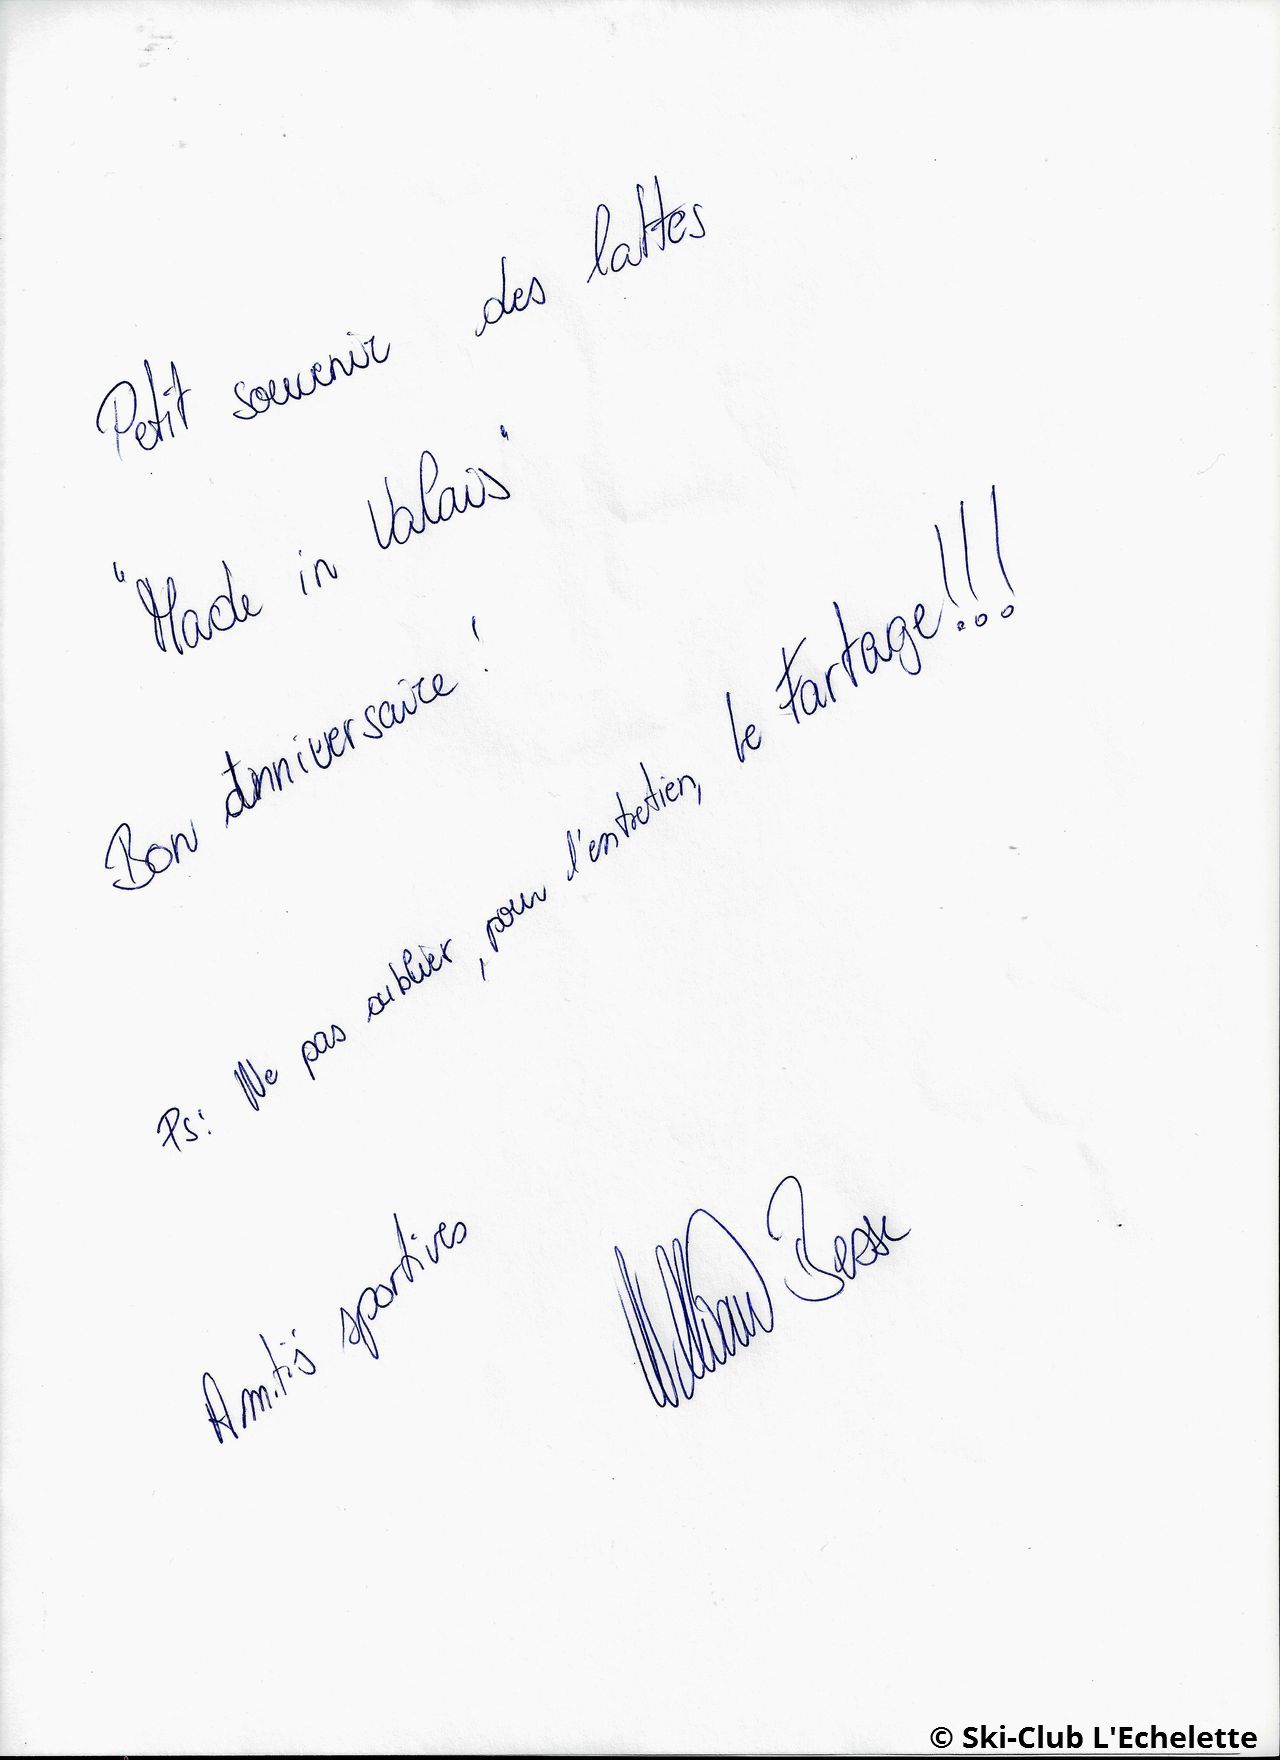 Petit souvenir des lattes
"Made in Valais"
Bon Anniversaire !
Ps: Ne pas oublier, pour l'entretien, le Fartage!!!
Amitiés sportives
William Besse
© Ski-Club L'Echelette